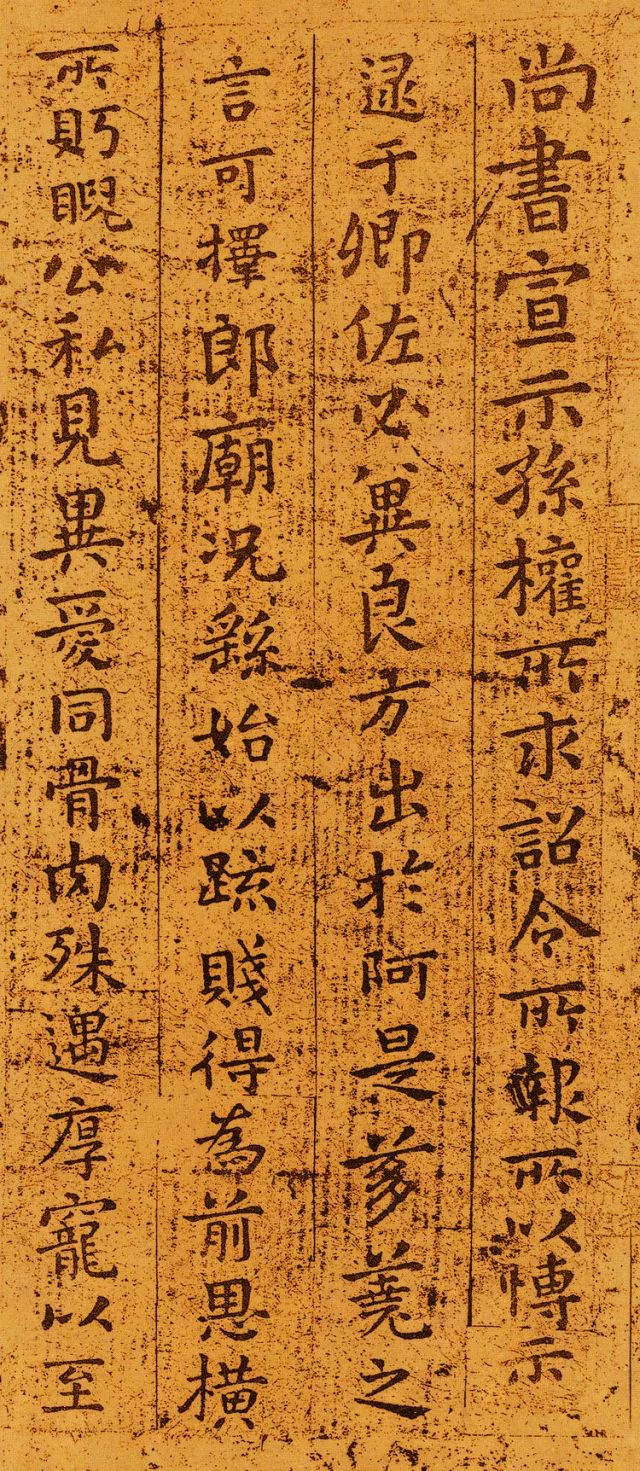 尚書宣示孫權所求詔令所報所以博示
逮于卿佐必異良方出於阿是芻蕘之
言可擇郎廟況繇始以疏賤得為前恩橫
所盱睨公私見異愛同骨肉殊遇厚寵以至